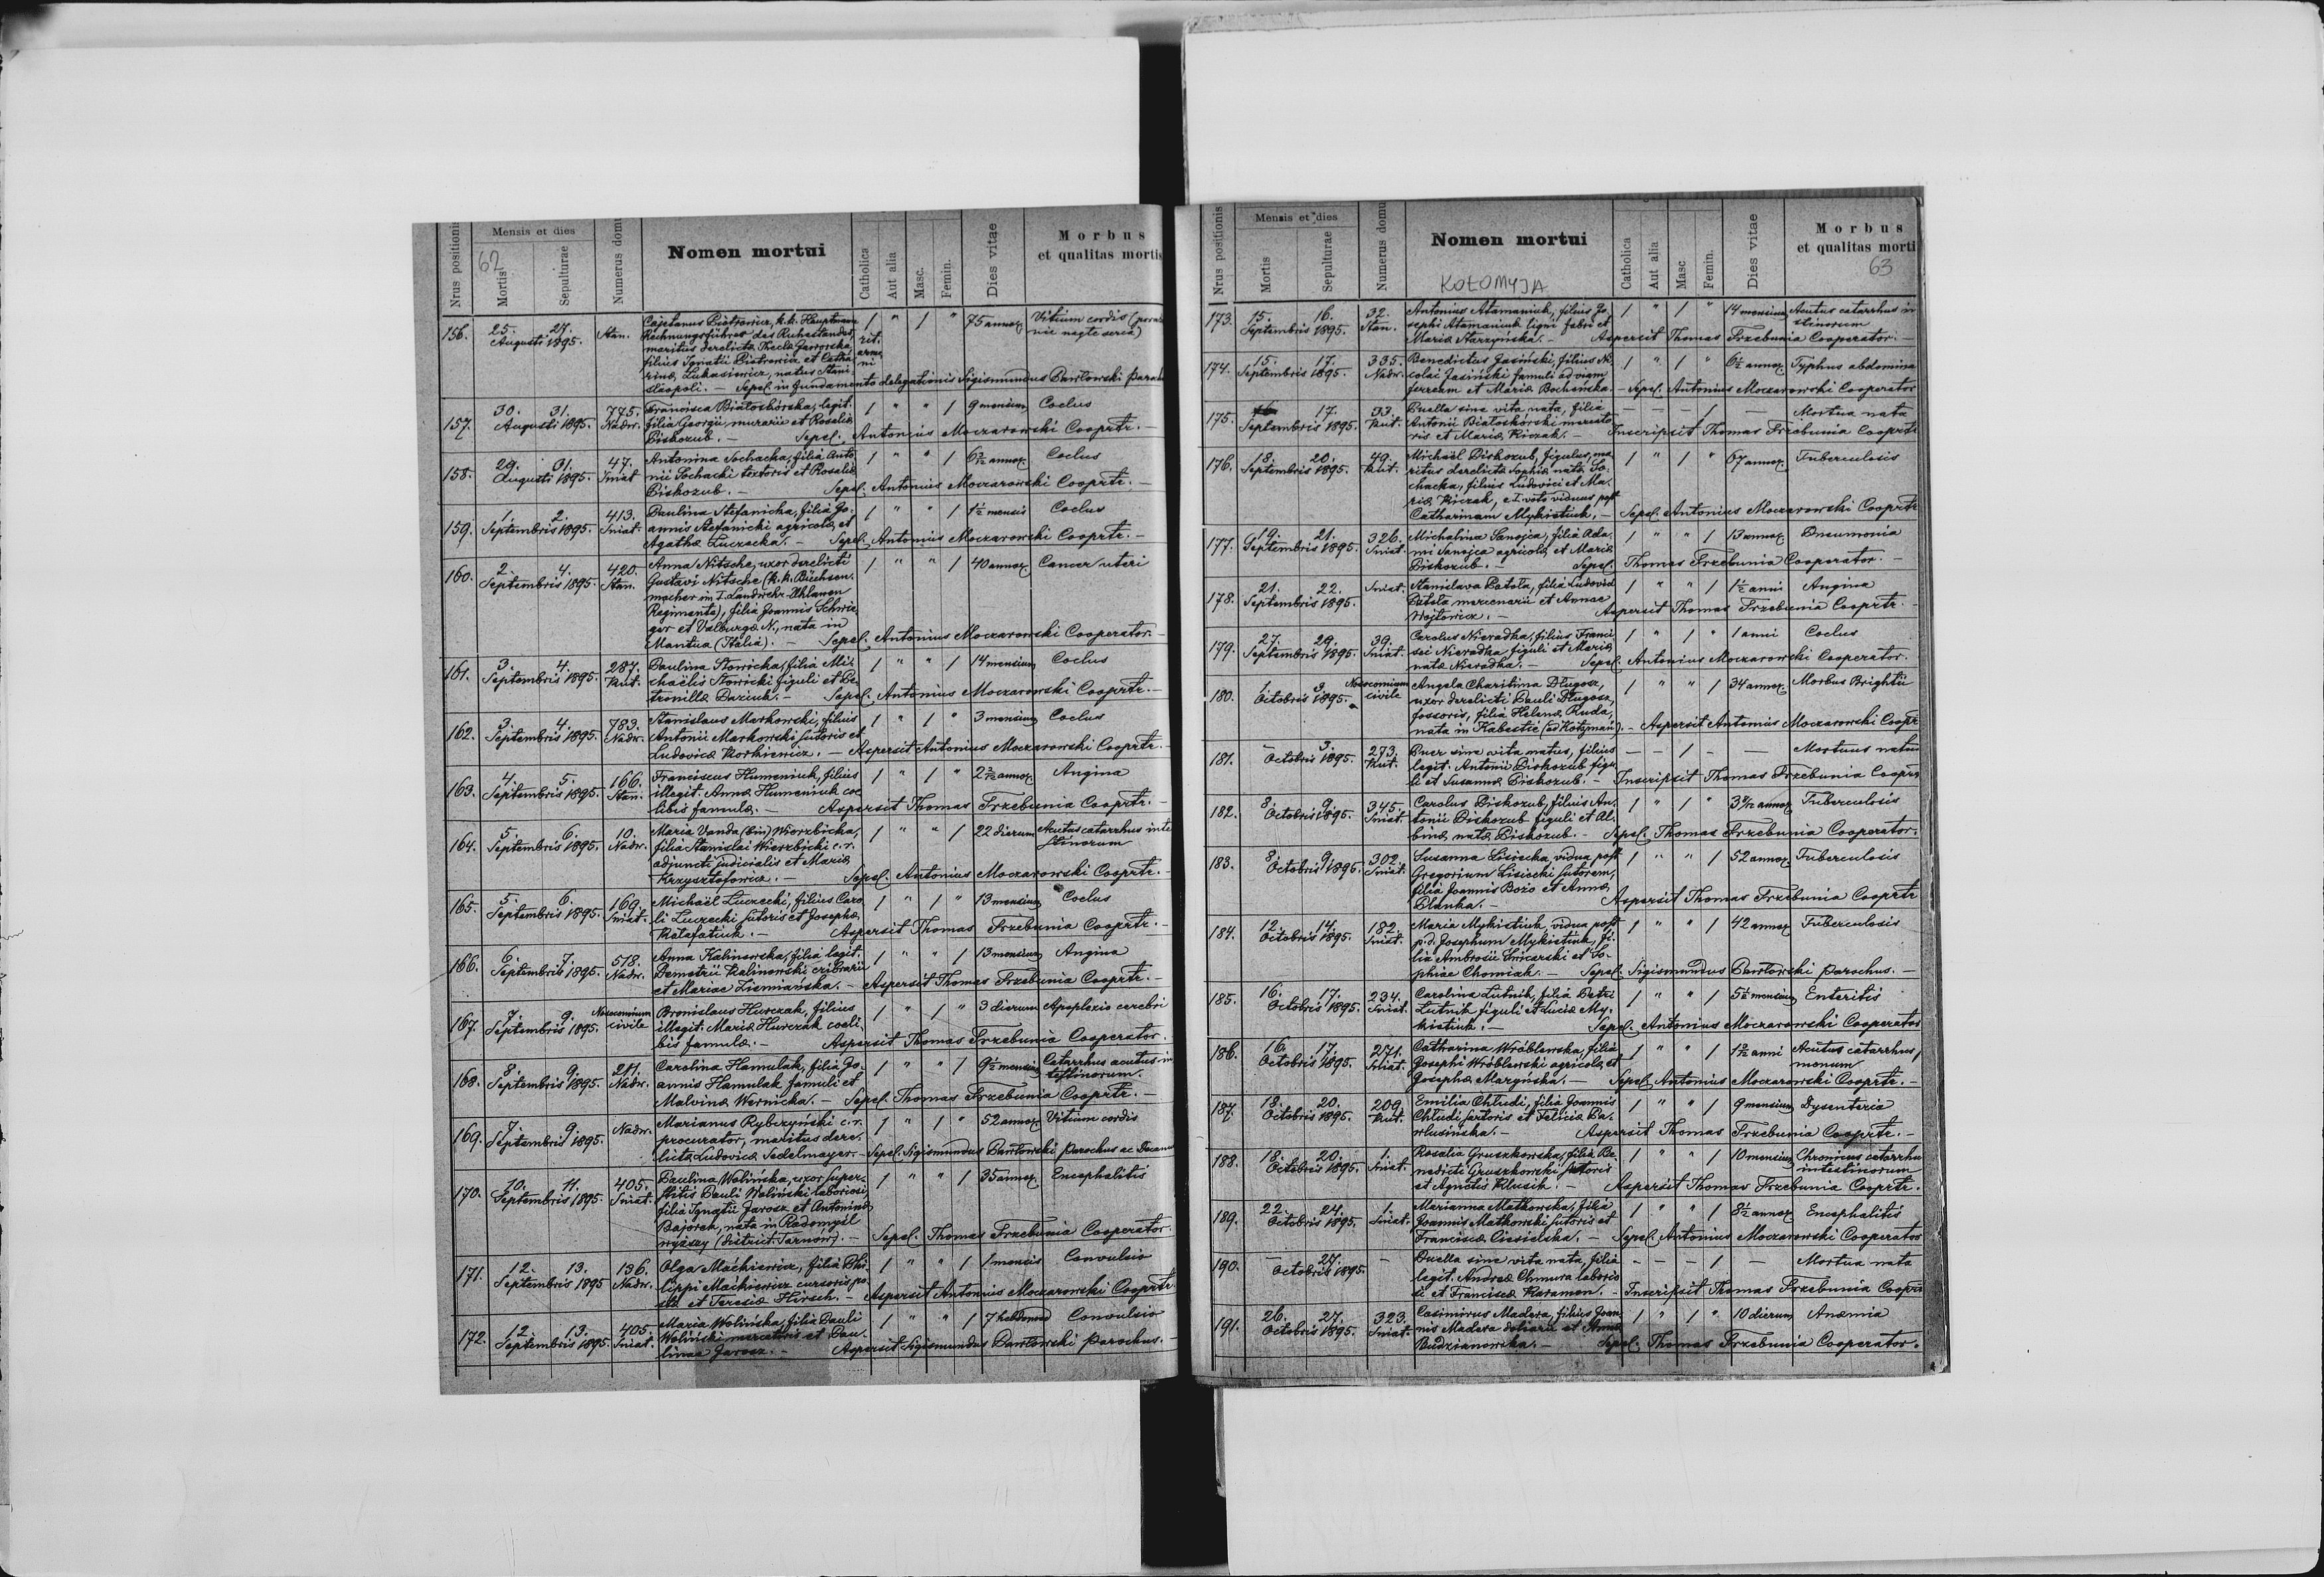 Nrus positionis
Mensis et dies
62
Mortis
Sepulturae
Numerus domu
Nomen mortui
Catholica
Aut alia
Masc.
Femin.
Dies vitae
Morbus
et qualitas mortis
156. 25. 27. Augusti 1895. Stan. Cajetanus Piotrowicz, k.k. Hauptmann 1 " 1 " 75 annor. Vitium cordis
Rechnungsführer des Ruhestandes, rit.
maritus derelictae Theclae Jaworska, arme
filius Ignatii Piotrowicz et Catha ni
rinae Łukasiewicz, natus Stani
slaopoli. — Sepel. in fundamento delegationis Sigismundus Pawłowski Paroch
157. 30. 31. Augusti 1895. 775. Nadw. Francisca Białoskórska, legit. 1 " " 1 9 mensium Coclus
filia Georgii, murarii et Rosaliae
Piskozub. — Sepel. Antonius Moczarowski Cooprtr. —
158. 29. 31. Augusti 1895. 47. Sniat Antonina Sochacka, filia Anto 1 " " 1 annor. Coclus
nii Sochacki textoris et Rosaliae
Piskozub. — Sepel. Antonius Moczarowski Cooprtr. —
159. 1. 2. Septembris 1895. 413. Sniat. Paulina Stefanicka, filia Jo 1 " " 1 1½ mensis Coclus
annis Stefanicki agricolae et
Agathae Łuczecka. — Sepel. Antonius Moczarowski Cooprtr. —
160. 2. 4. Septembris 1895. 420. Stan. Anna Nitsche, uxor derelicti 1 " " 1 40 annor. Cancer uteri
Gustavi Nitsche (k.k. Büchsen
macher im I. Landwehr-Uhlanen
Regimente), filia Joannis Schwie
ger et Valburgae N., nata in
Mantua (Italia). — Sepel. Antonius Moczarowski Cooperator. —
161. 3. 4. Septembris 1895. 287. Kut. Paulina Słowicka, filia Mi 1 " " 1 14 mensium Coclus
chaëlis Słowicki figuli et Pe
tronillae Daziuk. — Sepel. Antonius Moczarowski Cooprtr. —
162. 3. 4. Septembris 1895. 783. Nadw. Stanislaus Markowski, filius 1 " 1 " 3 mensium Coclus
Antonii Markowski sutoris et
Ludovicae Korkiewicz. — Aspersit Antonius Moczarowski Cooprtr.
163. 4. 5. Septembris 1895. 166. Stan. Franciscus Humeniuk, filius 1 " 1 " annor. Angina
illegit. Annae Humeniuk coe
libis famulae. — Aspersit Thomas Trzebunia Cooprtr. —
164. 5. 6. Septembris 1895. 10. Nadw. Maria Vanda (bin) Wierzbicka, 1 " " 1 22 dierum Acutus catarrhus inte
filia Stanislai Wierzbicki c.r. stinorum
adjuncti judicialis et Mariae
Krzysztofowicz. — Sepel. Antonius Moczarowski Cooprtr. —
165. 5. 6. Septembris 1895. 169. Sniat. Michaël Łuczecki, filius Caro 1 " 1 " 13 mensium Coclus
li Łuczecki sutoris et Josephae
Kałafatiuk. — Aspersit Thomas Trzebunia Cooprtr. —
166. 6. 7. Septembris 1895. 578. Nadw. Anna Kalinowska, filia legit. 1 " " 1 13 mensium Angina
Demetrii Kalinowski cribrarii
et Mariae Ziemiańska. — Aspersit Thomas Trzebunia Cooprtr. —
167. 7. 9. Septembris 1895. Nosocomium civile Bronislaus Hurczak, filius 1 " 1 " 3 dierum Apoplexia cerebri
illegit. Mariae Hurczak coeli
bis famulae. — Aspersit Thomas Trzebunia Cooperator.
168. 8. 9. Septembris 1895. 241. Nadw. Carolina Hamulak, filia Jo 1 " " 1 9½ mensium Catarrhus acutus in
annis Hamulak famuli et testinorum.
Malvinae Wernicka. — Sepel. Thomas Trzebunia Cooprtr. —
169. 7. 9. Septembris 1895. Nadw. Marianus Rybczyński c.r. 1 " 1 " 52 annor. Vitium cordis
procurator, maritus dere
lictae Ludovicae Sedelmayer. — Sepel. Sigismundus Pawłowski Parochus ac Decanus
170. 10. 11. Septembris 1895. 405. Sniat. Paulina Wolińska, uxor super 1 " " 1 35 annor. Encephalitis
stitis Pauli Woliński laboriosi,
filia Ignatii Jarosz et Antoninae
Bajorek, nata in Radomyśl
wyższy (district. Tarnów). — Sepel. Thomas Trzebunia Cooperator
171. 12. 13. Septembris 1895 136. Nadw. Olga Maćkiewicz, filia Phi 1 " " 1 1 mensis Convulsio
lippi Maćkiewicz cursoris po
stae et Teresiae Hirsch. — Aspersit Antonius Moczarowski Cooprtr
172. 12. 13. Septembris 1895. 405. Sniat. Maria Wolińska, filia Pauli 1 " " 1 7 hebdomad Convulsio
Woliński mercatoris et Pau
linae Jarosz. — Aspersit Sigismundus Pawłowski Parochus. —
Nrus positionis
Mensis et dies
Mortis
Sepulturae
Numerus domu
Nomen mortui
KOŁOMYJA
Catholica
Aut alia
Masc
Femin.
Dies vitae
Morbus
et qualitas morti
63
173. 15. 16. Septembris 1895. 32. Stan. Antonius Atamaniuk, filius Jo 1 " 1 " 14 mensium Acutus catarrhus in
sephi Atamaniuk ligni fabri et stinorum
Mariae Starzyńska. — Aspersit Thomas Trzebunia Cooperator. —
174. 15. 17. Septembris 1895. 335. Nadw. Benedictus Jasiński, filius Ni 1 " 1 " 6½ annor. Typhus abdomina
colai Jasiński famuli ad viam
ferream et Mariae Bocheńska. — Sepel. Antonius Moczarowski Cooperator
175. 17. Septembris 1895. 33. Kut. Puella sine vita nata, filia — — — 1 — Mortua nata
Antonii Białoskórski mercato
ris et Mariae Kiczak. — Inscripsit Thomas Trzebunia Cooprtr
176. 18. 20. Septembris 1895. 49. Kut. Michaël Piskozub, figulus, ma 1 " 1 " 67 annor. Tuberculosis
ritus derelictae Sophiae natae So
chacka, filius Ludovici et Ma
riae Kiczak, e I. voto viduus post
Catharinam Mykistiuk. — Sepel. Antonius Moczarowski Cooprtr
177. 19. 21. Septembris 1895. 326. Sniat. Michalina Sanojca, filia Ada 1 " " 1 13 annor. Pneumonia
mi Sanojca agricolae et Mariae
Piskozub. — Sepel. Thomas Trzebunia Cooperator. —
178. 21. 22. Septembris 1895. Sniat. Stanislava Patoła, filia Ludovici 1 " " 1 1½ anni Angina
Patoła mercenarii et Annae
Wojtowicz. — Aspersit Thomas Trzebunia Cooprtr. —
179. 27. 29. Septembris 1895. 39. Sniat. Carolus Nieradka, filius Franci 1 " 1 " 1 anni Coclus
sci Nieradka figuli et Mariae
natae Nieradka. — Sepel. Antonius Moczarowski Cooperator.
180. 1. 3. Octobris 1895. Nosocomium civile Angela Charitina Długosz, 1 " " 1 34 annor. Morbus Brightii
uxor derelicti Pauli Długosz,
fossoris, filia Helenae Ruda,
nata in Kabestie (ad Kotzmań). — Aspersit Antonius Moczarowski Cooprtr
181. — 3. Octobris 1895. 273. Kut. Puer sine vita natus, filius — — 1 — — Mortuus natus
legit. Antonii Piskozub figu
li et Susannae Piskozub. — Inscripsit Thomas Trzebunia Cooprtr
182. 8. 9. Octobris 1895. 345. Sniat. Carolus Piskozub, filius An 1 " 1 " annor. Tuberculosis
tonii Piskozub figuli et Al
binae natae Piskozub. — Sepel. Thomas Trzebunia Cooperator.
183. 8. 9. Octobris 1895. 302. Sniat. Susanna Lisiecka, vidua post 1 " " 1 52 annor. Tuberculosis
Gregorium Lisiecki sutorem,
filia Joannis Bożo et Annae
Blanka. — Aspersit Thomas Trzebunia Cooprtr
184. 12. 14. Octobris 1895. 182. Sniat. Maria Mykistiuk, vidua post 1 " " 1 42 annor. Tuberculosis
p.d. Josephum Mykistiuk, fi
lia Ambrosii Śnicarski et So
phiae Chomiak. — Sepel. Sigismundus Pawłowski Parochus. —
185. 16. 17. Octobris 1895. 234. Sniat. Carolina Lutnik, filia Petri 1 " " 1 5½ mensium Enteritis
Lutnik figuli et Luciae My
kistiuk. — Sepel. Antonius Moczarowski Cooperator
186. 16. 17. Octobris 1895. 271. Sniat. Catharina Wróblewska, filia 1 " " 1 anni Acutus catarrhus
Josephi Wróblewski agricolae et monum
Josephae Mazyńska. — Sepel. Antonius Moczarowski Cooprtr. —
187. 18. 20. Octobris 1895. 209. Kut. Emilia Chłudi, filia Joannis 1 " " 1 9 mensium Dysenteria
Chłudi sartoris et Feliciae Pa
wlusińska. — Aspersit Thomas Trzebunia Cooprtr. —
188. 18. 20. Octobris 1895. 1. Sniat. Rosalia Gruszkowska, filia Be 1 " " 1 10 mensium Chronicus catarrhu
nedicti Gruszkowski sutoris intestinorum
et Agnetis Klusik. — Aspersit Thomas Trzebunia Cooprtr.
189. 22. 24. Octobris 1895. 1. Sniat. Marianna Matkowska, filia 1 " " 1 8½ annor. Encephalitis
Joannis Matkowski sutoris et
Franciscae Ciesielska. — Sepel. Antonius Moczarowski Cooperator
190. — 27. Octobris 1895. — Puella sine vita nata, filia — — — 1 — Mortua nata
legit. Andreae Chmura laborio
si et Franciscae Karamon. — Inscripsit Thomas Trzebunia Cooprtr
191. 26. 27. Octobris 1895. 323. Sniat. Casimirus Madera, filius Joan 1 " 1 " 10 dierum Anaemia
nis Madera doliarii et Annae
Budzianowska. — Sepel. Thomas Trzebunia Cooperator.